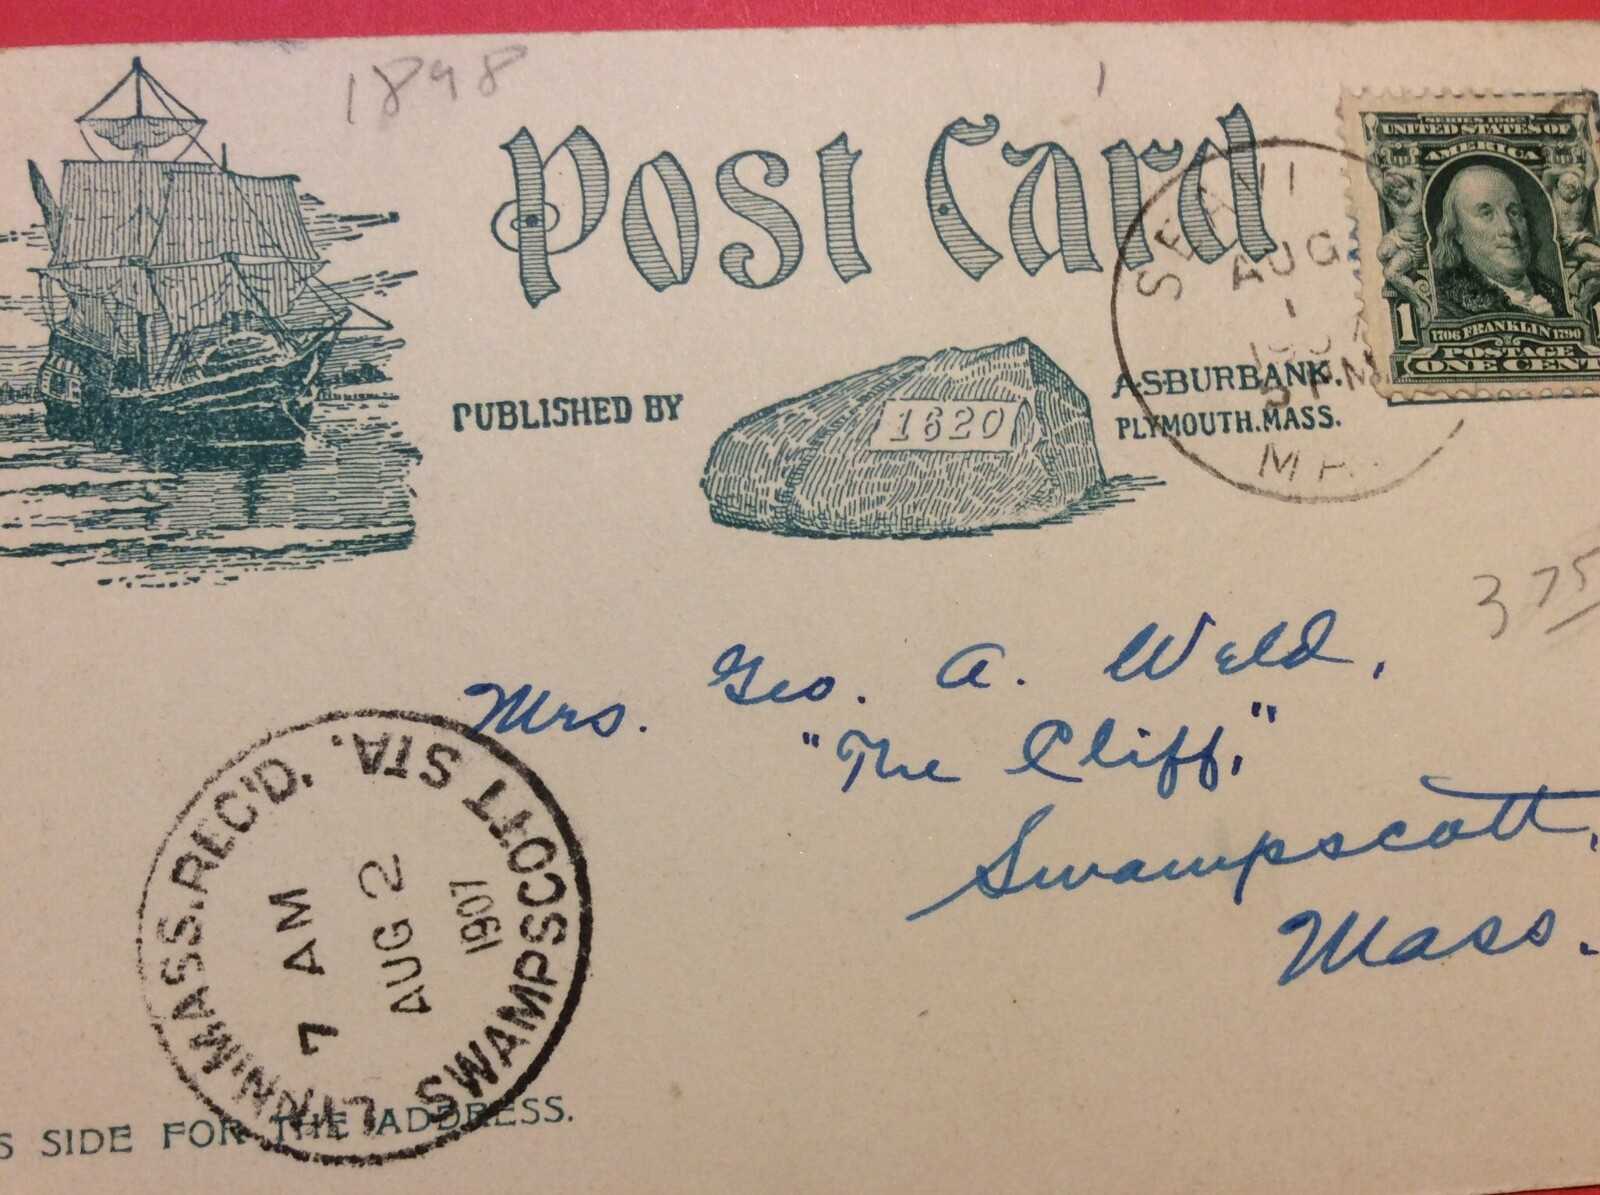 1898
Post Card
SERIES 1902
UNITED STATES OF
AMERICA
1
1706 FRANKLIN 1790
POSTAGE
ONE CENT
AUG
1
1907
PM
PUBLISHED BY
1620
A·S·BURBANK.
PLYMOUTH.MASS.
375
Mrs. Geo. A. Weld,
"The Cliff,"
Swampscott,
Mass.
LYNN, MASS. REC'D. SWAMPSCOTT STA.
7 AM
AUG 2
1907
SIDE FOR THE ADDRESS.